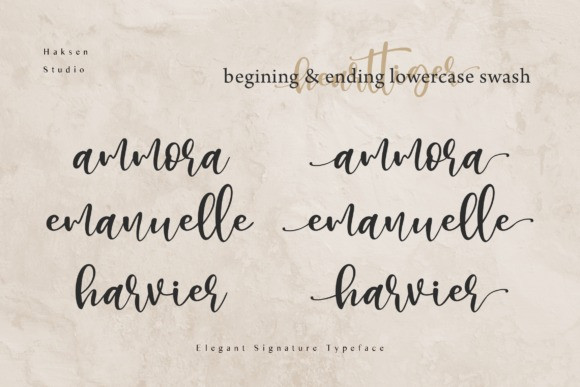 Haksen
Studio
hearttiger
begining & ending lowercase swash
ammora
ammora
emanuelle
emanuelle
harvier
harvier
Elegant Signature Typeface